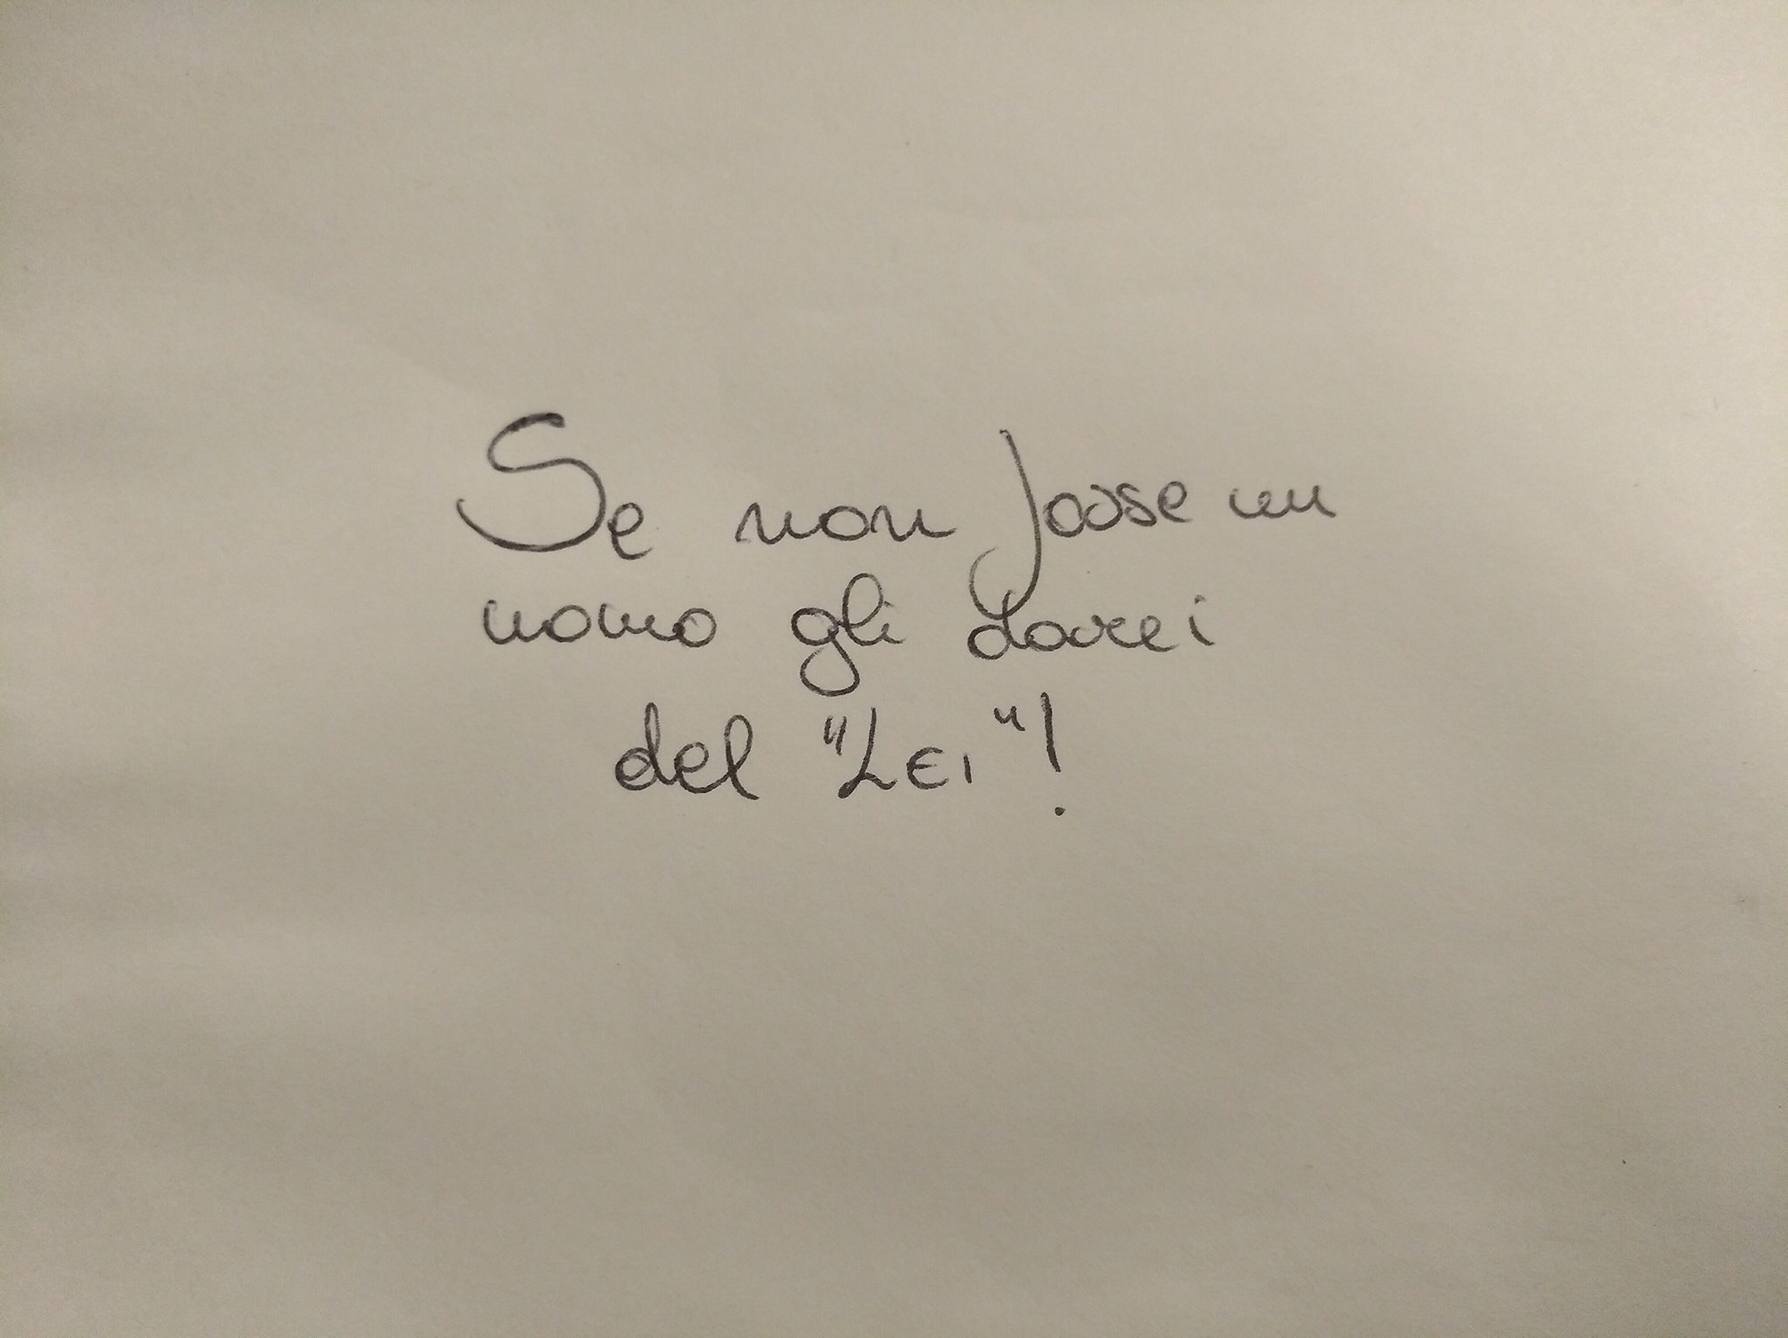 Se non fosse un
uomo gli darei
del "Lei"!